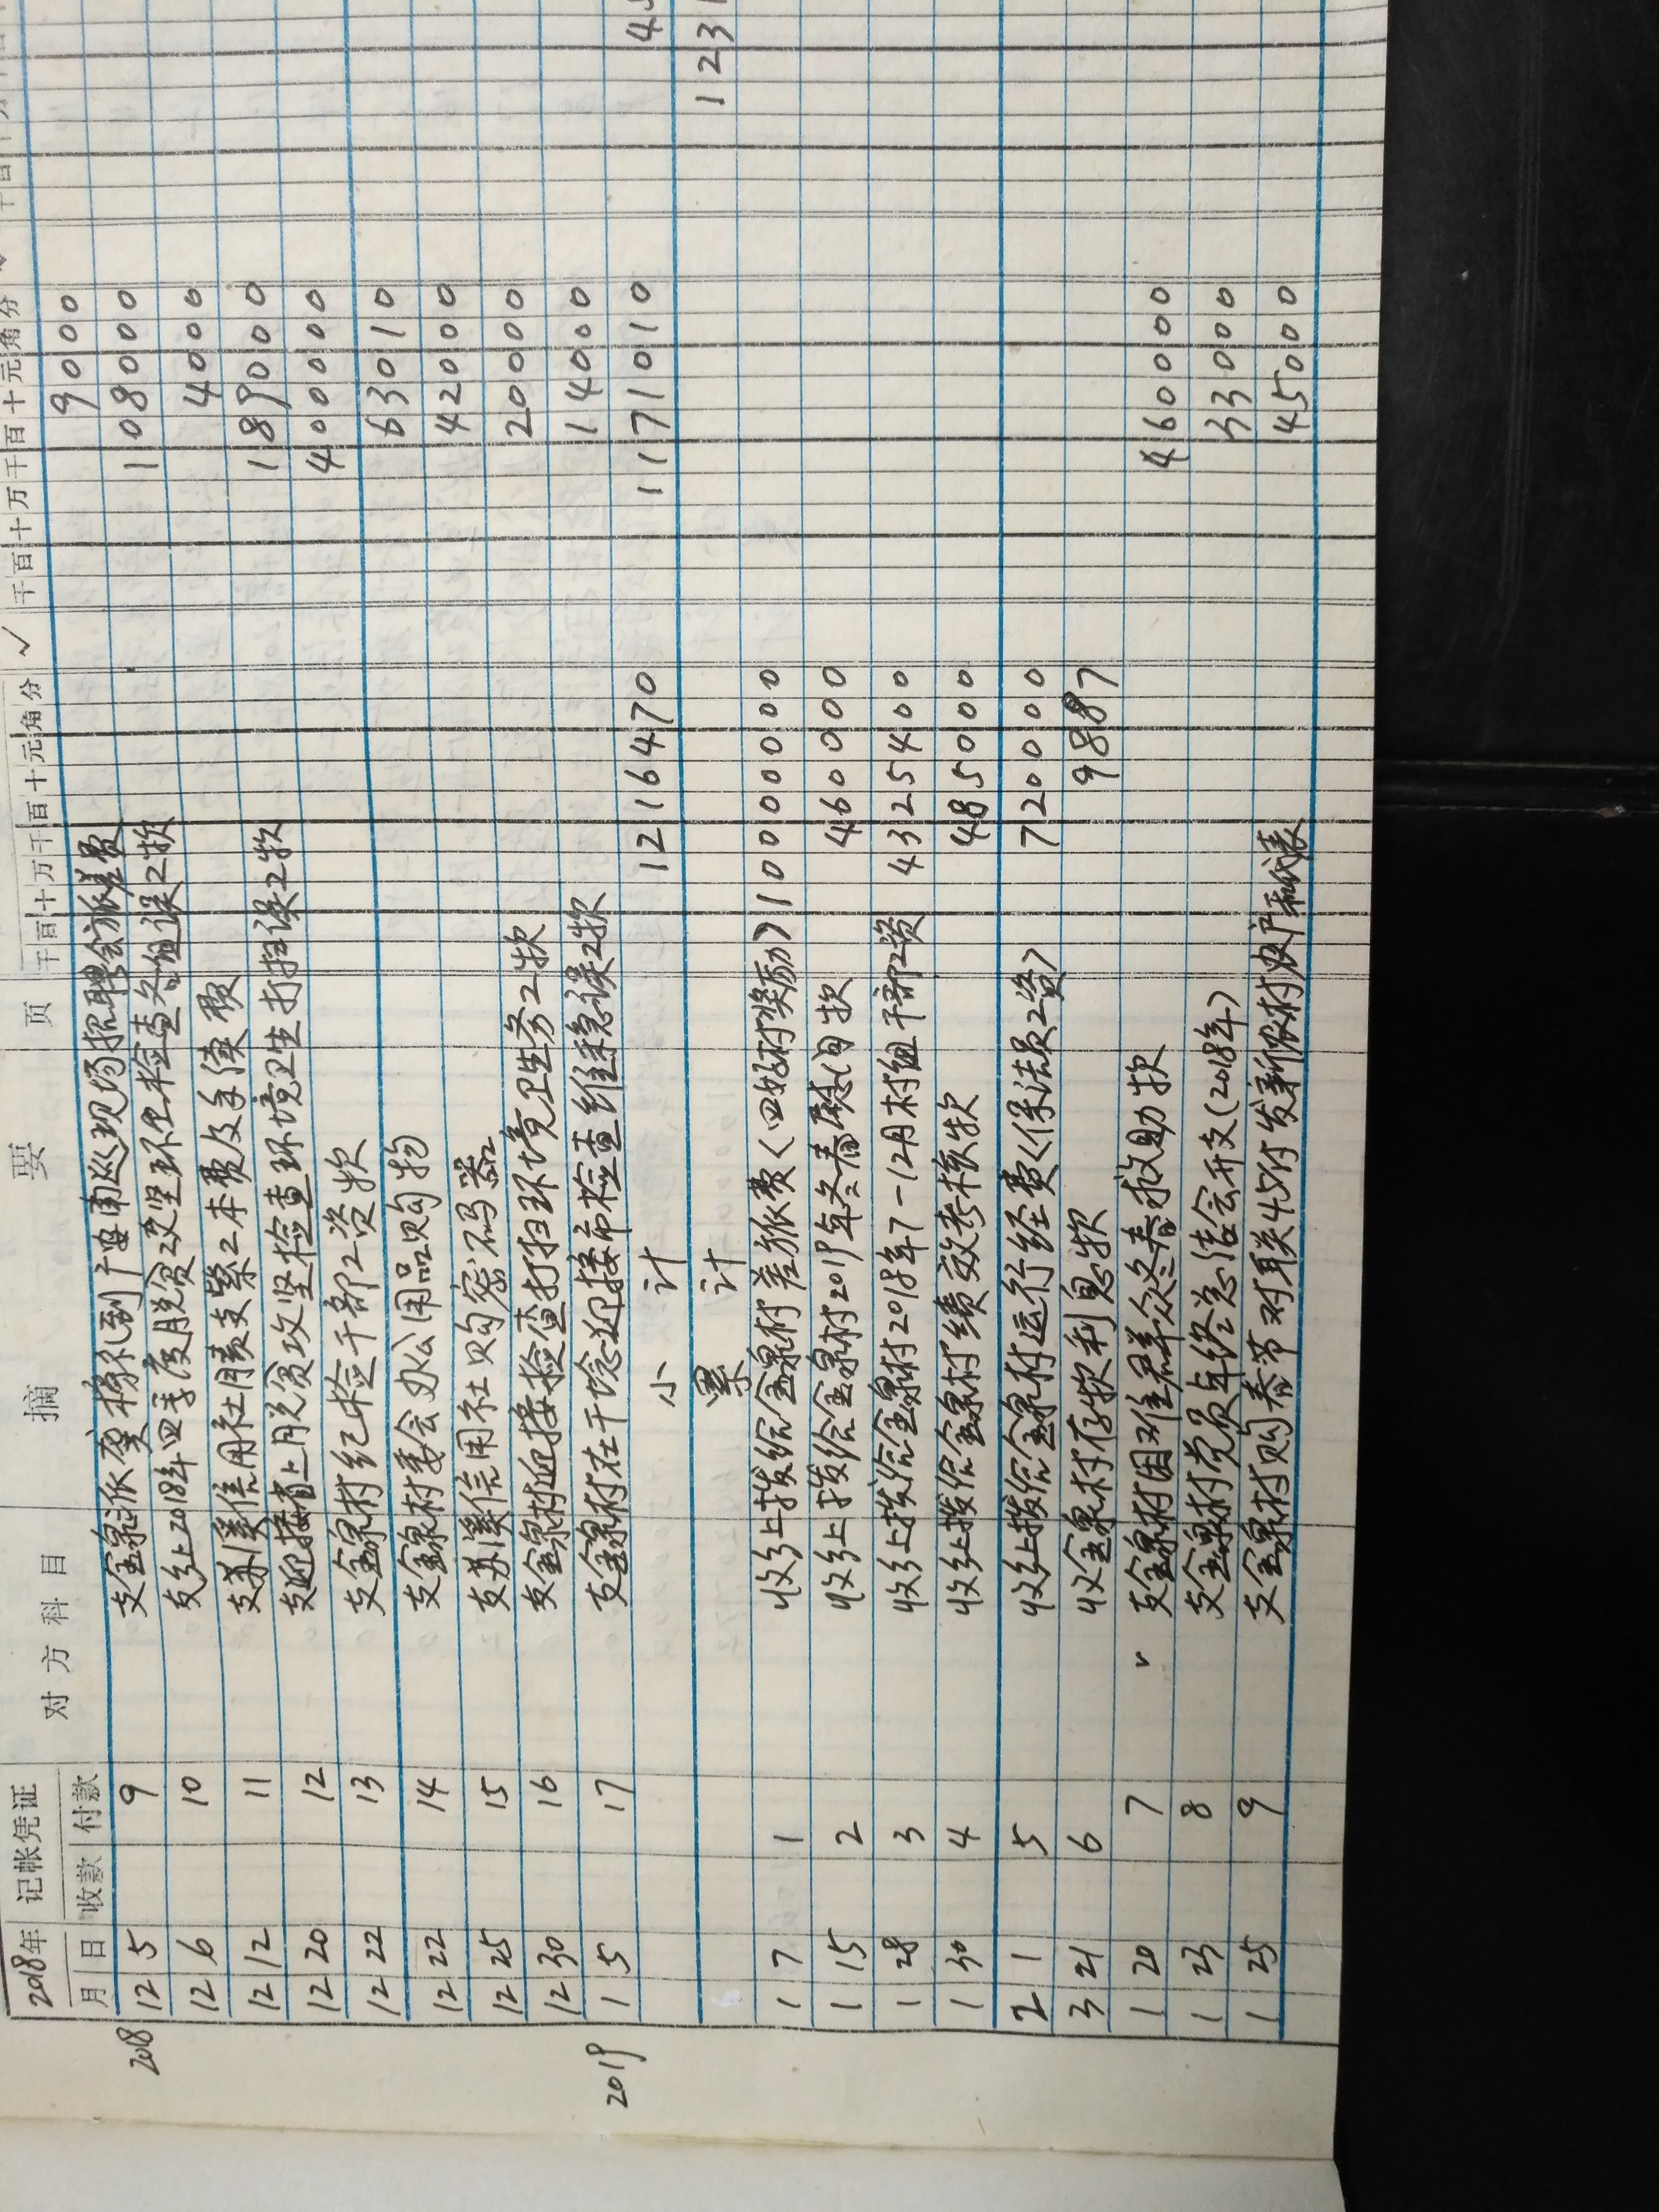 2018年 记帐凭证 对方科目 摘要 页 千百十万千百十元角分 ✓ 千百十万千百十元角分 ✓
月 日 收款 付款
2018 12 5 9 支金泉派 到广安南巡现场招聘会旅差费 90 00
12 6 10 支乡上2018年四季度脱贫攻坚环卫检查 误工款 1080 00
12 12 11 支苏溪信用社用支票工本费及手续费 40 00
12 20 12 支迎接省上脱贫攻坚检查环境卫生打扫误工款 1890 00
12 22 13 支金泉村纪检干部工资款 4000 00
12 22 14 支金泉村委会办公用品购物 630 10
12 25 15 支苏溪信用社购密码器 420 00
12 30 16 支金泉村迎接检查打扫环境卫生务工款 2000 00
2019 1 5 17 支金泉村在 迎接市检查维稳误工款 140 00
小计 12164 70 11710 10 4
累计 123
1 7 1 收乡上拨给金泉村差旅费(四好村奖励) 100000 00
1 15 2 收乡上拨给金泉村2019年冬春慰问款 4600 00
1 28 3 收乡上拨给金泉村2018年7-12月村组干部工资 43254 00
1 30 4 收乡上拨给金泉村绩效考核款 4850 00
2 1 5 收乡上拨给金泉村运行经费(保洁员工资) 7200 00
3 21 6 收金泉村存款利息款 98 87
1 20 7 ✓ 支金泉村困难群众冬春救助款 4600 00
1 23 8 支金泉村党员年终总结会开支(2018年) 330 00
1 25 9 支金泉村购春节对联45付发 农户和代表 450 00